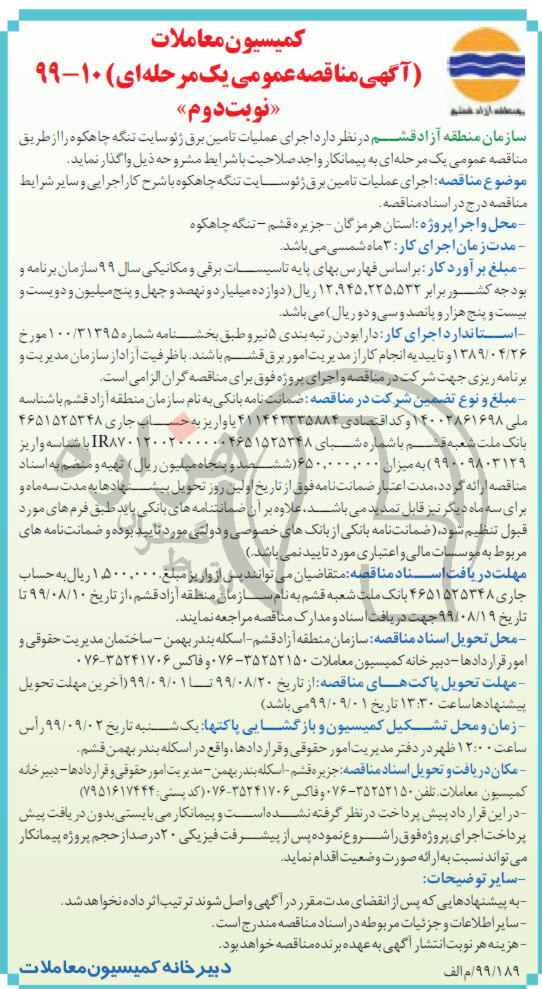 کمیسیون معاملات
(آگهی مناقصه عمومی یک مرحله‌ای) ۱۰-۹۹
«نوبت دوم»
منطقه آزاد قشم
سازمان منطقه آزاد قشم در نظر دارد اجرای عملیات تامین برق ژئوسایت تنگه چاهکوه را از طریق
مناقصه عمومی یک مرحله‌ای به پیمانکار واجد صلاحیت با شرایط مشروحه ذیل واگذار نماید.
موضوع مناقصه: اجرای عملیات تامین برق ژئوسایت تنگه چاهکوه با شرح کار اجرایی و سایر شرایط
مناقصه درج در اسناد مناقصه.
-محل و اجرا پروژه: استان هرمزگان -جزیره قشم – تنگه چاهکوه
-مدت زمان اجرای کار: ۳ ماه شمسی می باشد.
-مبلغ برآورد کار: بر اساس فهارس بهای پایه تاسیسات برقی و مکانیکی سال ۹۹ سازمان برنامه و
بودجه کشور برابر ۱۲,۹۴۵,۲۲۵,۵۳۲ ریال (دوازده میلیارد و نهصد و چهل و پنج میلیون و دویست و
بیست و پنج هزار و پانصد و سی و دو ریال) می باشد.
-استاندارد اجرای کار: دارا بودن رتبه بندی ۵ نیرو طبق بخشنامه شماره ۱۰۰/۳۱۳۹۵ مورخ
۱۳۸۹/۰۴/۲۶ و تاییدیه انجام کار از مدیریت امور برق قشم باشند. با ظرفیت آزاد از سازمان مدیریت و
برنامه ریزی جهت شرکت در مناقصه و اجرای پروژه فوق برای مناقصه گران الزامی است.
-مبلغ و نوع تضمین شرکت در مناقصه: ضمانت نامه بانکی به نام سازمان منطقه آزاد قشم با شناسه
ملی ۱۴۰۰۲۸۶۱۶۹۸ و کد اقتصادی ۴۱۱۴۴۳۳۳۵۸۸۴ یا واریز به حساب جاری ۴۶۵۱۵۲۵۳۴۸
بانک ملت شعبه قشم با شماره شبای IR۸۷۰۱۲۰۰۲۰۰۰۰۰۰۴۶۵۱۵۲۵۳۴۸ با شناسه واریز
۹۹۰۰۹۸۰۳۱۲۹) به میزان ۶۵۰,۰۰۰,۰۰۰ (ششصد و پنجاه میلیون ریال) تهیه و منضم به اسناد
مناقصه ارائه گردد، مدت اعتبار ضمانت نامه فوق از تاریخ اولین روز تحویل پیشنهادها به مدت سه ماه و
برای سه ماه دیگر نیز قابل تمدید می باشد، علاوه بر آن ضمانتنامه های بانکی باید طبق فرم های مورد
قبول تنظیم شود، (ضمانت نامه بانکی از بانک های خصوصی و دولتی مورد تایید بوده و ضمانت نامه های
مربوط به موسسات مالی و اعتباری مورد تایید نمی باشد.)
مهلت دریافت اسناد مناقصه: متقاضیان می توانند پس از واریز مبلغ ۱,۵۰۰,۰۰۰ ریال به حساب
جاری ۴۶۵۱۵۲۵۳۴۸ بانک ملت شعبه قشم به نام سازمان منطقه آزاد قشم، از تاریخ ۹۹/۰۸/۱۰ تا
تاریخ ۹۹/۰۸/۱۹ جهت دریافت اسناد و مدارک مناقصه مراجعه نمایند.
-محل تحویل اسناد مناقصه: سازمان منطقه آزاد قشم-اسکله بندر بهمن – ساختمان مدیریت حقوقی و
امور قراردادها – دبیرخانه کمیسیون معاملات ۳۵۲۵۲۱۵۰-۰۷۶ و فاکس ۳۵۲۴۱۷۰۶-۰۷۶
-مهلت تحویل پاکت های مناقصه: از تاریخ ۹۹/۰۸/۲۰ تا ۹۹/۰۹/۰۱ (آخرین مهلت تحویل
پیشنهادها ساعت ۱۳:۳۰ تاریخ ۹۹/۰۹/۰۱ می باشد)
-زمان و محل تشکیل کمیسیون و بازگشایی پاکتها: یک شنبه تاریخ ۹۹/۰۹/۰۲ رأس
ساعت ۱۲:۰۰ ظهر در دفتر مدیریت امور حقوقی و قراردادها، واقع در اسکله بندر بهمن قشم.
-مکان دریافت و تحویل اسناد مناقصه: جزیره قشم-اسکله بندر بهمن – مدیریت امور حقوقی و قراردادها – دبیرخانه
کمیسیون معاملات. تلفن ۳۵۲۵۲۱۵۰-۰۷۶ و فاکس ۳۵۲۴۱۷۰۶-۰۷۶ (کد پستی: ۷۹۵۱۶۱۷۴۴۴)
-در این قرارداد پیش پرداخت در نظر گرفته نشده است و پیمانکار می بایستی بدون دریافت پیش
پرداخت اجرای پروژه فوق را شروع نموده پس از پیشرفت فیزیکی ۲۰ درصد از حجم پروژه پیمانکار
می تواند نسبت به ارائه صورت وضعیت اقدام نماید.
-سایر توضیحات:
-به پیشنهادهایی که پس از انقضای مدت مقرر در آگهی واصل شوند ترتیب اثر داده نخواهد شد.
-سایر اطلاعات و جزئیات مربوطه در اسناد مناقصه مندرج است.
-هزینه هر نوبت انتشار آگهی به عهده برنده مناقصه خواهد بود.
دبیرخانه کمیسیون معاملات
۹۹/۱۸۹/م الف